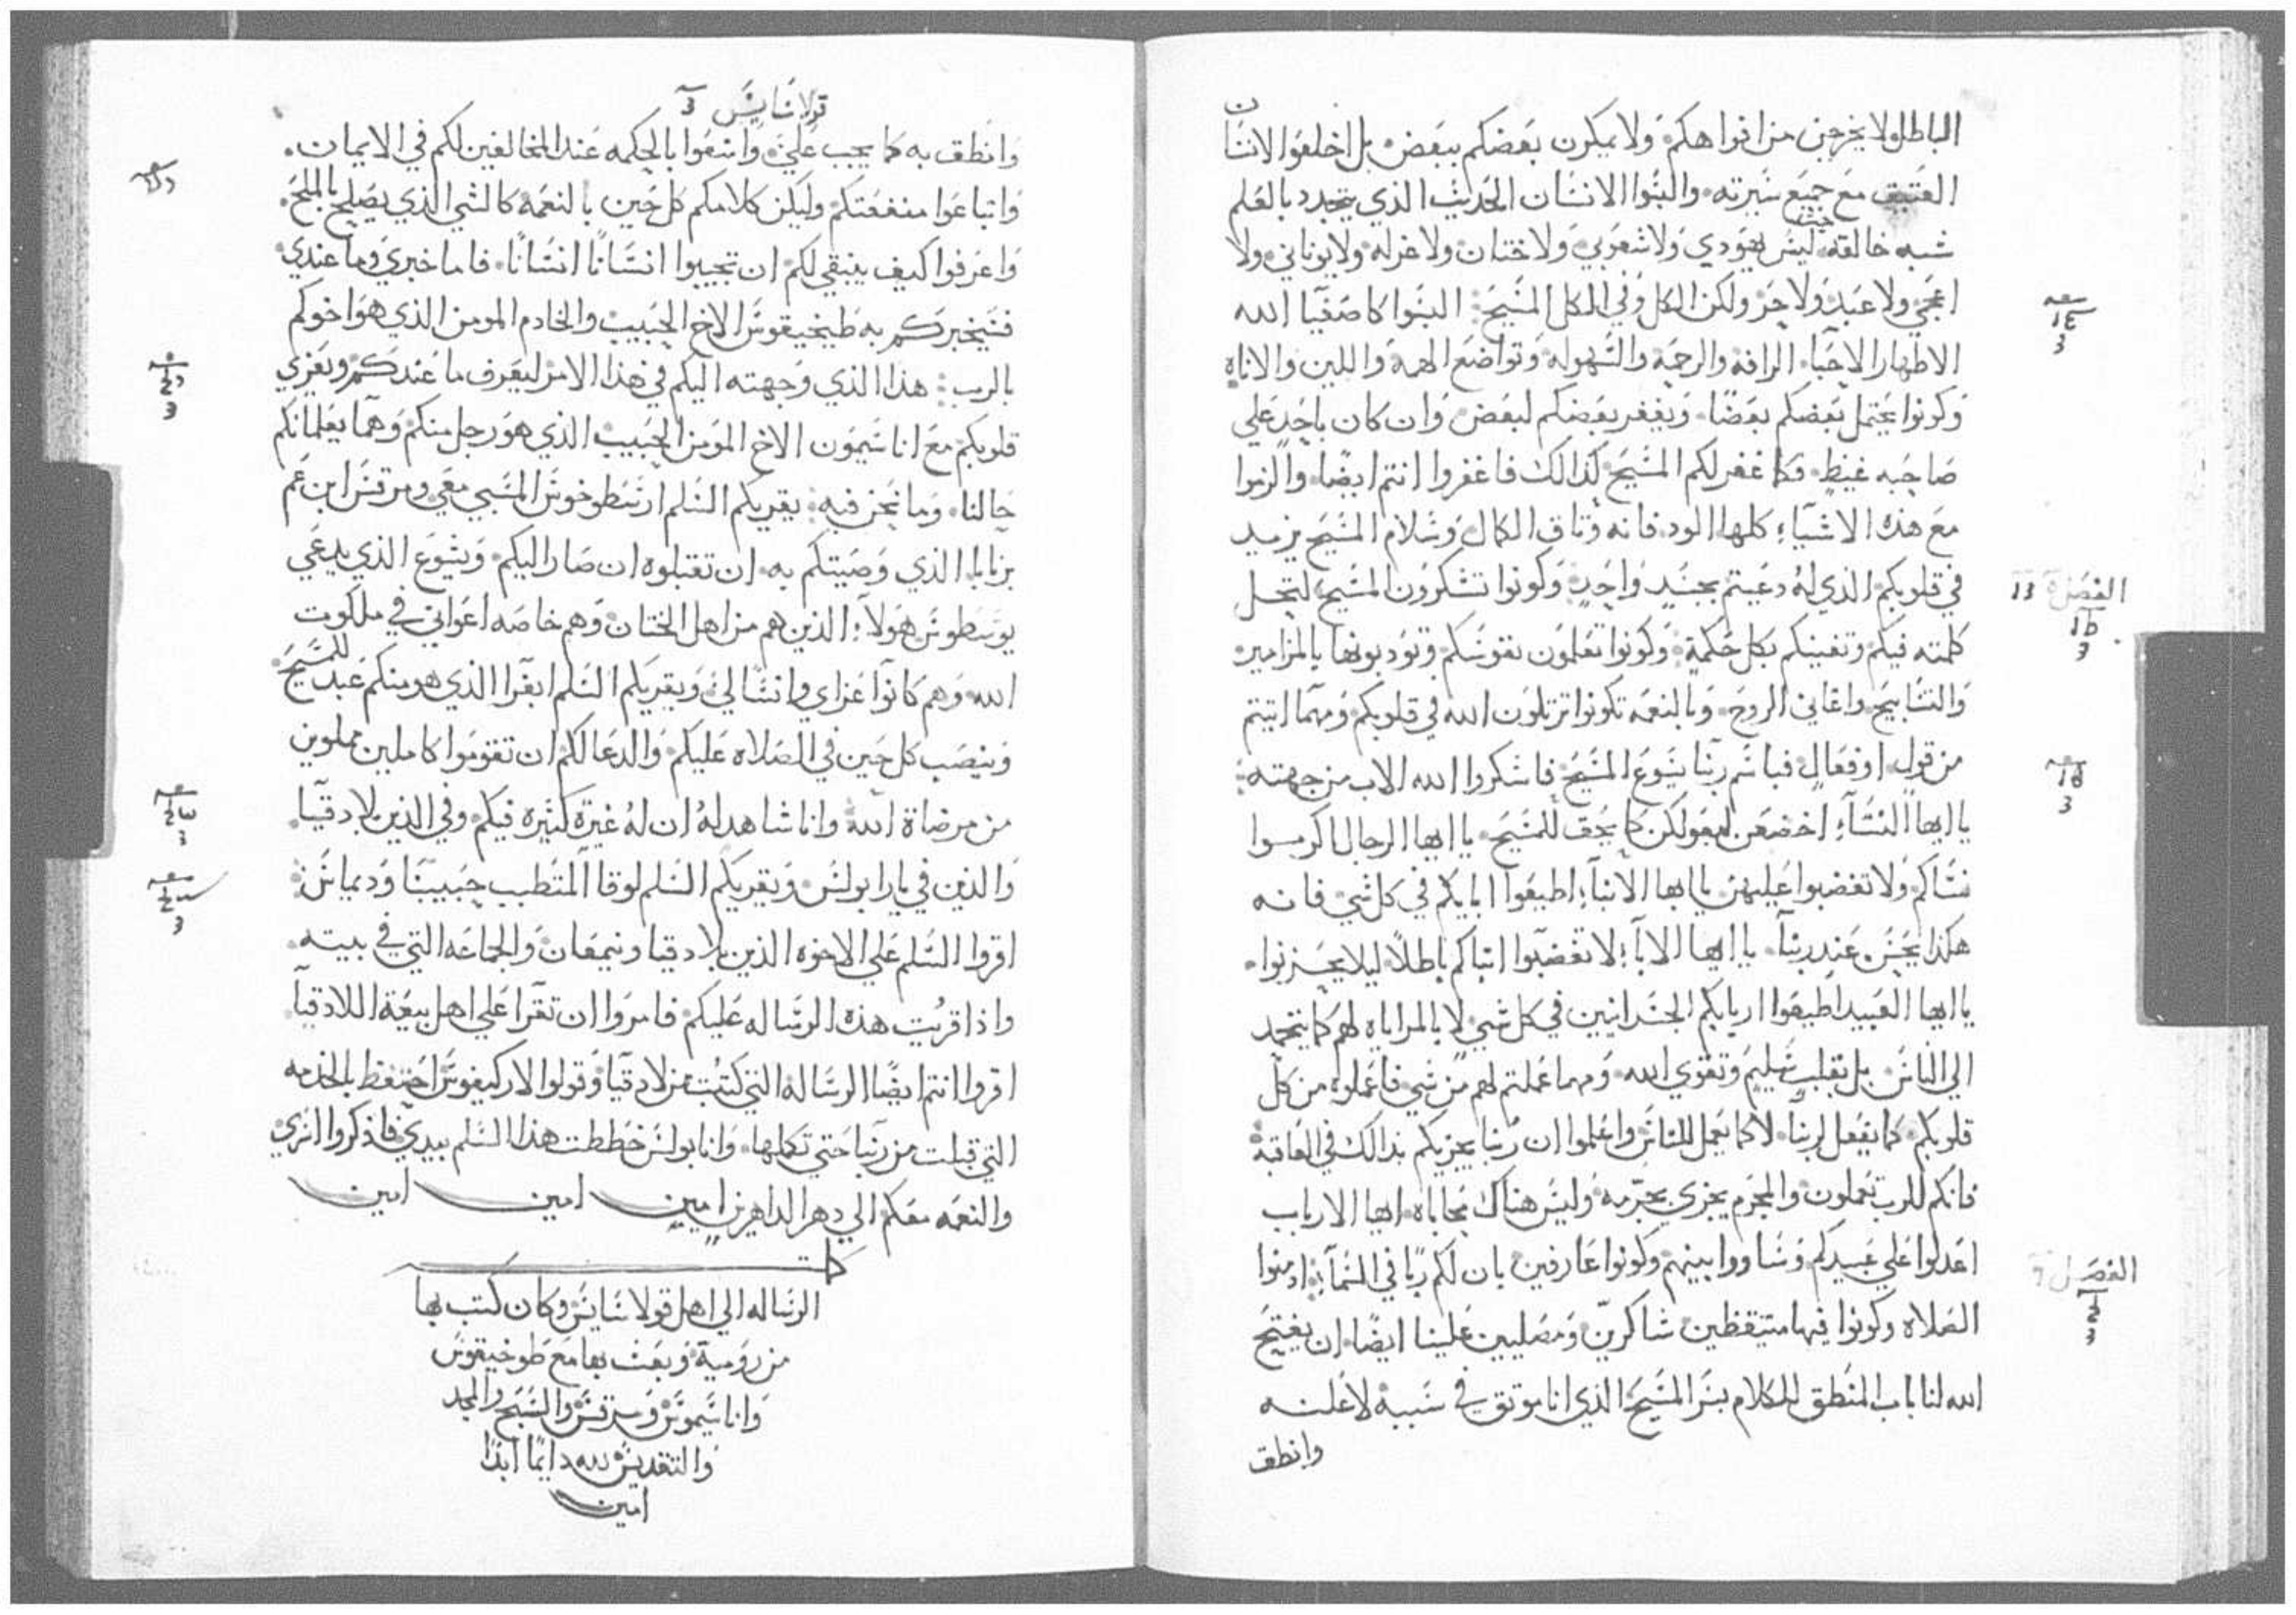 الباطل ولا يخرجن من افواهكم ولا يمكرن بعضكم ببعض بل اخلعوا الانسان
العتيق مع جميع سيرته والبسوا الانسان الحديث الذي يتجدد بالعلم
شبه خالقه حيث ليس يهودي ولا شعوبي ولا ختان ولا غرله ولا يوناني ولا
اعجمي ولا عبد ولا حر ولكن الكل وفي الكل المسيح البسوا كاصفيآ الله
الاطهار الاحبا الرافه والرحمه والسهوله وتواضع الهمة واللين والاناه
وكونوا يحتمل بعضكم بعضا ويغفر بعضكم لبعض وان كان باحد علي
صاحبه غيظ فكما غفر لكم المسيح كذالك فاغفروا انتم ايضا والزموا
مع هذه الاشيآء كلها الود فانه وثاق الكمال وسلام المسيح يزيد
في قلوبكم الذي له دعيتم بجسد واحد وكونوا تشكرون المسيح لتحل
الفصل
كلمته فيكم وتغنيكم بكل حكمة وكونوا تعلمون نفوسكم وتودبونها بالمزامير
والتسابيح واغاني الروح وبالنعمه تكونوا ترتلون الله في قلوبكم ومهما اتيتم
من قول او فعال فباسم ربنا يسوع المسيح فاشكروا الله الاب من جهته
يا ايها النسآء اخضعن لبعولكن كما يحق للمسيح يا ايها الرجال اكرموا
نساكم ولا تغضبوا عليهن يا ايها الابنآء اطيعوا ابايكم في كل شي فانه
هكذا يحسن عند ربنا يا ايها الابآء لا تغضبوا ابناكم باطلا ليلا يحزنوا
يا ايها العبيد اطيعوا اربابكم الجسدانيين في كل شي لا بالمراياه لهم كما يتحمد
الي الناس بل بقلب سليم وتقوي الله ومهما عملتم لهم من شي فاعملوه من كل
قلوبكم كما يفعل لربنا لا كما يعمل للناس واعلموا ان ربنا يجزيكم بذالك في العاقبة
فانكم للرب تعملون والمجرم يجزي بجرمه وليس هناك محاباه ايها الارباب
اعدلوا علي عبيدكم وساووا بينهم وكونوا عارفين بان لكم ربا في السمآء ادمنوا
الفصل
الصلاه وكونوا فيها متيقظين شاكرين ومصليين علينا ايضا ان يفتح
الله لنا باب المنطق للكلام بسر المسيح الذي انا موثوق في سببه لاعلنه
وانطق
قولاسايس
وانطق به كما يجب علي واسعوا بالحكمه عند المخالفين لكم في الايمان
واتباعوا منفعتكم وليكن كلامكم كل حين بالنعمه كالشي الذي يصلح بالملح
واعرفوا كيف ينبغي لكم ان تجيبوا انسانا انسانا فاما خبري وما عندي
فسيخبركم به طيخيقوس الاخ الحبيب والخادم المومن الذي هو اخوكم
بالرب هذا الذي وجهته اليكم في هذا الامر ليعرف ما عندكم ويعزي
قلوبكم مع اناسيمون الاخ المومن الحبيب الذي هو رجل منكم وهما يعلمانكم
حالنا وما نحن فيه يقريكم السلم ارسطوخوس المسبي معي ومرقس ابن عم
برنابا الذي وصيتكم به ان تقبلوه ان صار اليكم ويسوع الذي يدعي
يوسطوس هولآء الذين هم من اهل الختان وهم خاصه اعواني في ملكوت
الله وهم كانوا عزاي وانسا لي ويقريكم السلم ابفرا الذي هو منكم عبد للمسيح
وينصب كل حين في الصلاه عليكم والدعا لكم ان تقوموا كاملين مملوين
من مرضاة الله وانا شاهد له ان له غيرة كثيره فيكم وفي الذين بلادقيا
والذين في يارابولس ويقريكم السلم لوقا المتطبب حبيبنا وديماس
اقروا السلم علي الاخوه الذين بلادقيا ونيمفان والجماعه التي في بيته
واذا قريت هذه الرساله عليكم فامروا ان تقرا علي اهل بيعة اللادقيآ
اقروا انتم ايضا الرساله التي كتبت من لادقيا وقولوا لاركيفوس احتفظ بالخدمه
التي قبلت من ربنا حتي تكملها وانا بولس خططت هذا السلم بيدي فاذكروا اسري
والنعمه معكم الي دهر الداهرين امين امين امين
الرساله الي اهل قولاسايس وكان كتب بها
من رومية وبعث بها مع طوخيقوس
واناسيموس ومرقس والسبح والمجد
والتقديس لله دايما ابدا
امين